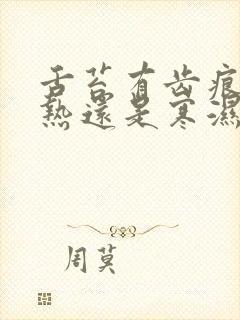 舌苔有齿痕
熱還是寒濕
周莫